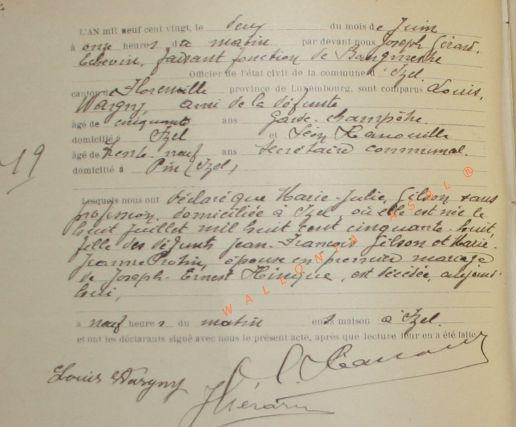 L'AN mil neuf cent vingt, le deux du mois de Juin
à onze heures du matin par devant nous Joseph Gérard
Echevin, faisant fonction de Bourgmestre
Officier de l'état civil de la commune d'Izel
canton de Florenville province de Luxembourg, sont comparus Louis
Wargny ami de la défunte
âgé de cinquante ans Garde-champêtre
domicilié à Izel et Léon Lanouille
âgé de trente-neuf ans secrétaire communal
19
domicilié à Pin (Izel)
Lesquels nous ont déclaré que Marie-Julie Gilson sans
profession domiciliée à Izel, où elle est née le
huit juillet mil huit cent cinquante-huit,
fille des défunts Jean-François Gilson et Marie-
Jeanne épouse en mariage
de Joseph-Ernest est décédée, aujourd'
hui,
WALLONIA ASBL ®
à neuf heures du matin en sa maison à Izel
et ont les déclarants signé avec nous le présent acte, après que lecture leur en a été faite
Louis Wargny
JGérard